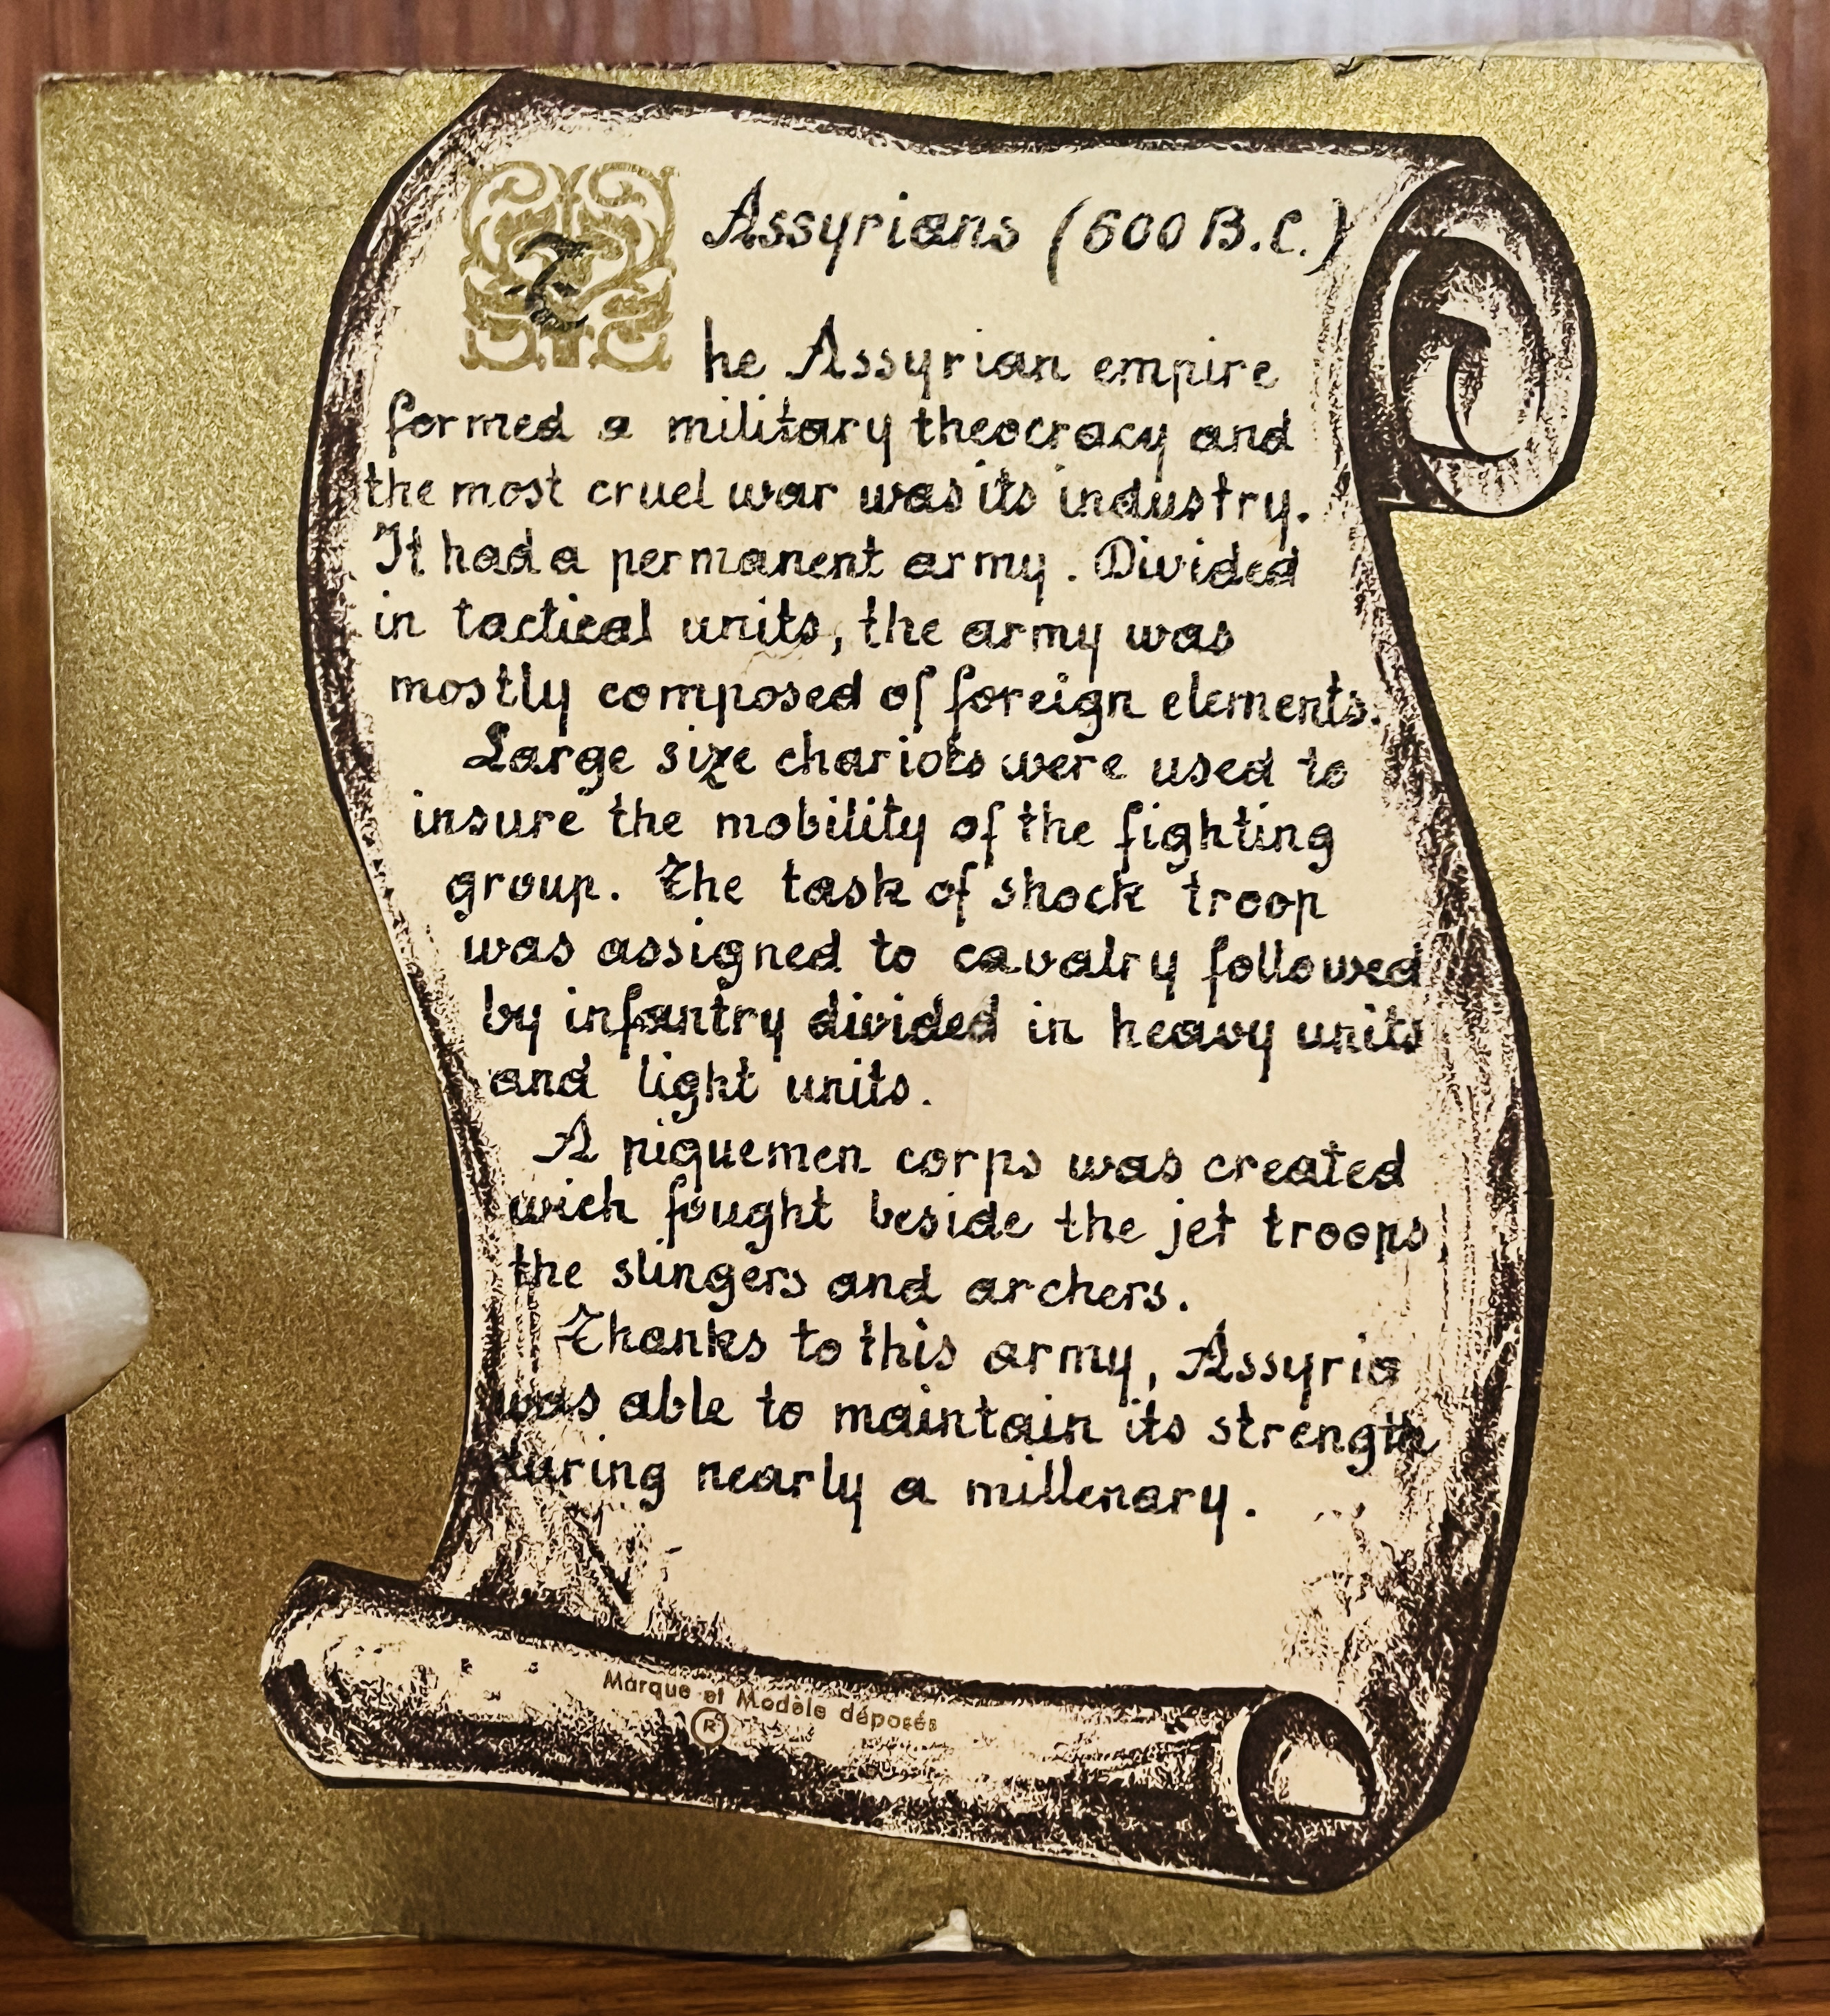 Assyrians (600 B.C.)
The Assyrian empire
formed a military theocracy and
the most cruel war was its industry.
It had a permanent army. Divided
in tactical units, the army was
mostly composed of foreign elements.
Large size chariots were used to
insure the mobility of the fighting
group. The task of shock troop
was assigned to cavalry followed
by infantry divided in heavy units
and light units.
A piquemen corps was created
wich fought beside the jet troops
the slingers and archers.
Thanks to this army, Assyria
was able to maintain its strength
during nearly a millenary.
Marque et Modèle déposés
®